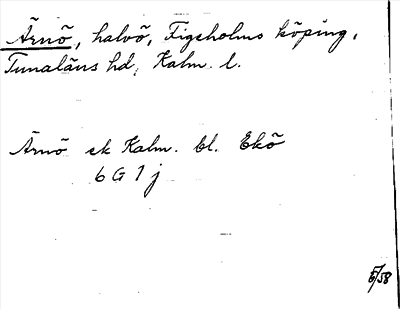 Ärnö, halvö, Figeholms köping,
Tunaläns hd, Kalm. l.
Ärnö ek Kalm. bl. Ekö
6 G 1 j
5/58